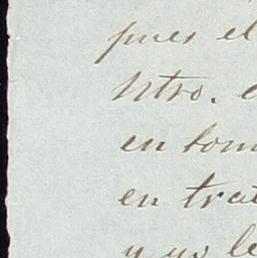 pues el
Ntro.
en tom
en trat
y yo le